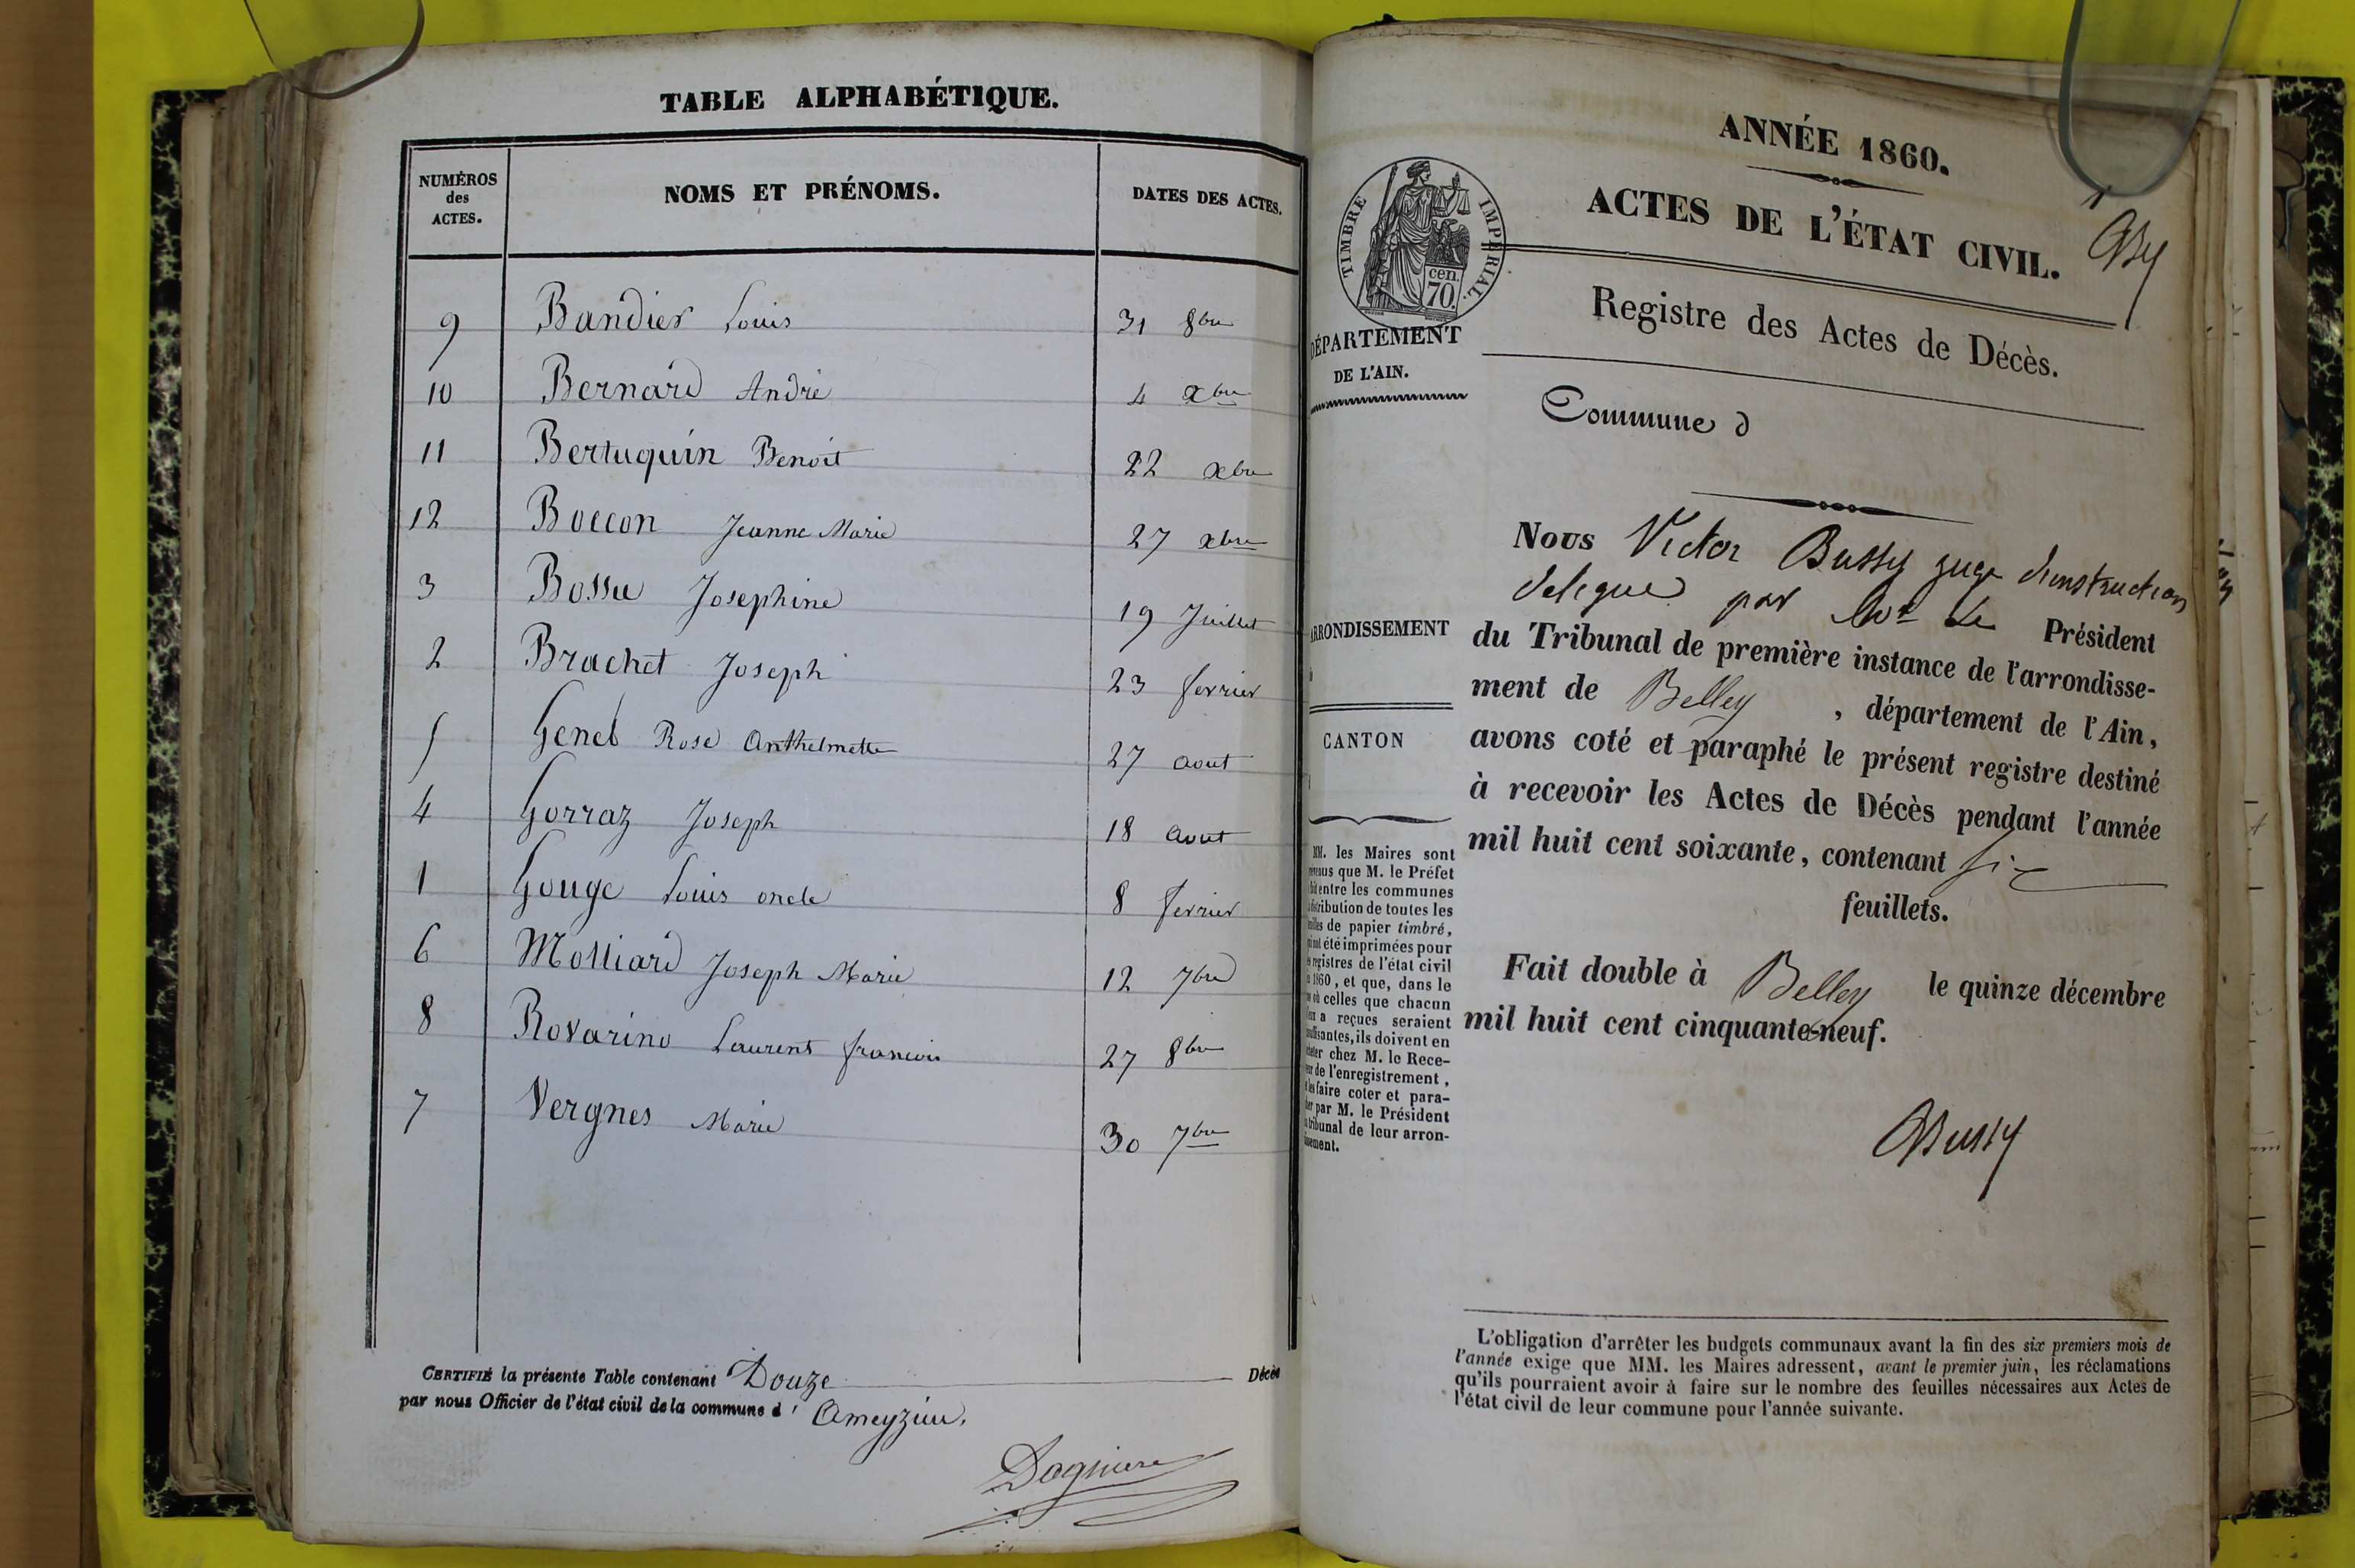 TABLE ALPHABÉTIQUE.
NUMÉROS des ACTES.
NOMS ET PRÉNOMS.
DATES DES ACTES.
9 Bandier Louis 31 8bre
10 Bernard André 4 xbre
11 Bertuquin Benoit 22 xbre
12 Boccon Jeanne Marie 27 xbre
3 Bossu Josephine 19 Juillet
2 Brachet Joseph 23 fevrier
5 Genet Rose Anthelmette 27 aout
4 Gorraz Joseph 18 aout
1 Gouge Louis oncle 8 fevrier
6 Molliard Joseph Marie 12 7bre
8 Rovarino Laurent francois 27 8bre
7 Vergnes Marie 30 7bre
CERTIFIÉ la présente Table contenant Douze Décès
par nous Officier de l'état civil de la commune d' Ameyzieu.
Dagniere
ANNÉE 1860.
ACTES DE L'ÉTAT CIVIL.
Registre des Actes de Décès.
TIMBRE IMPÉRIAL.
cen.
70.
DÉPARTEMENT
DE L'AIN.
Commune d
ARRONDISSEMENT
CANTON
Nous Victor Bussy juge d'instruction
delegué par Mr le Président
du Tribunal de première instance de l'arrondisse-
ment de Belley, département de l'Ain,
avons coté et paraphé le présent registre destiné
à recevoir les Actes de Décès pendant l'année
mil huit cent soixante, contenant six
feuillets.
Fait double à Belley le quinze décembre
mil huit cent cinquante-neuf.
Bussy
MM. les Maires sont
que M. le Préfet
entre les communes
distribution de toutes les
de papier timbré,
été imprimées pour
registres de l'état civil
1860, et que, dans le
où celles que chacun
a reçues seraient
ils doivent en
chez M. le Rece-
de l'enregistrement,
faire coter et para-
par M. le Président
tribunal de leur arron-
L'obligation d'arrêter les budgets communaux avant la fin des six premiers mois de
l'année exige que MM. les Maires adressent, avant le premier juin, les réclamations
qu'ils pourraient avoir à faire sur le nombre des feuilles nécessaires aux Actes de
l'état civil de leur commune pour l'année suivante.